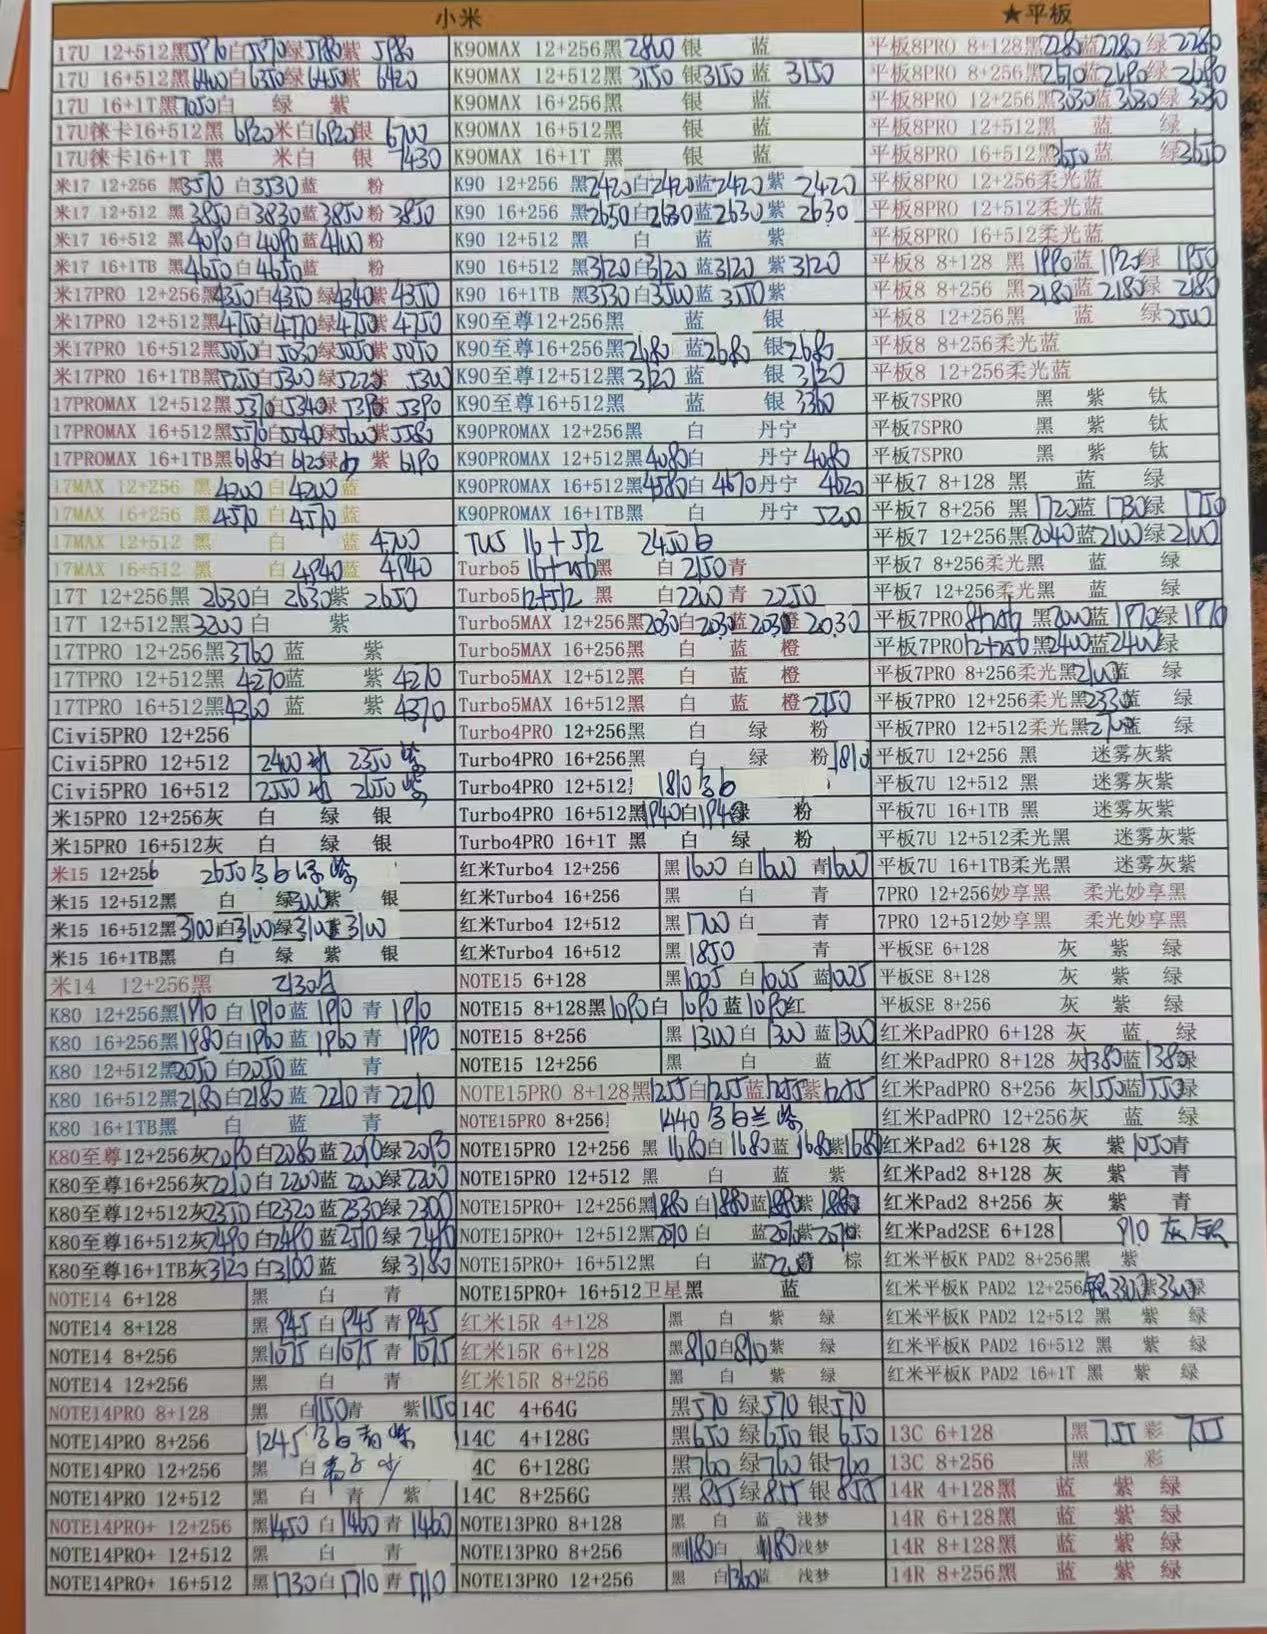 小米
★平板
17U 12+512黑5970白5970绿5980紫 5980
17U 16+512黑6400白6350绿6450紫 6420
17U 16+1T黑7050白 绿 紫
17U徕卡16+512黑 6920米白6920银 6700
17U徕卡16+1T 黑 米白 银 7430
米17 12+256 黑3570 白3530蓝 粉
米17 12+512 黑3850 白3830蓝3850 粉3850
米17 16+512 黑4090 白4090蓝4100粉
米17 16+1TB 黑4650白4650蓝 粉
米17PRO 12+256黑4350白4350 绿4340紫4350
米17PRO 12+512黑4750白4770绿4750紫4750
米17PRO 16+512黑5050白5030绿5050紫5050
米17PRO 16+1TB黑5250白5300绿5220紫 5300
17PROMAX 12+512黑5370白5340绿5390紫5390
17PROMAX 16+512黑5570白5540绿5600紫5580
17PROMAX 16+1TB黑6180白6120绿 紫 6190
17MAX 12+256 黑4200 白4200蓝
17MAX 16+256 黑4570 白4570蓝
17MAX 12+512 黑 白 蓝 4700
17MAX 16+512 黑 白4940蓝 4940
17T 12+256黑 2630白 2630紫 2650
17T 12+512黑3200白 紫
17TPRO 12+256黑3760 蓝 紫
17TPRO 12+512黑 4270蓝 紫4270
17TPRO 16+512黑4360 蓝 紫4370
Civi5PRO 12+256
Civi5PRO 12+512 2400 2350紫
Civi5PRO 16+512 2550 2650紫
米15PRO 12+256灰 白 绿 银
米15PRO 16+512灰 白 绿 银
米15 12+256 2650 白绿紫
米15 12+512黑 白 绿3000紫 银
米15 16+512黑3100白3100绿3100紫3100
米15 16+1TB黑 白 绿 紫 银
米14 12+256黑 2130白
K80 12+256黑1910 白1910蓝 1910 青 1910
K80 16+256黑1980白1960蓝 1960 青 1990
K80 12+512黑2050白2050蓝 青
K80 16+512黑2180白2180蓝 2210青2210
K80 16+1TB黑 白 蓝 青
K80至尊12+256灰2090白2080蓝2090绿2090
K80至尊16+256灰2210白2200蓝2200绿2200
K80至尊12+512灰2350白2320蓝2330绿2300
K80至尊16+512灰2490白2490蓝2510绿2490
K80至尊16+1TB灰3120白3100蓝 绿3180
NOTE14 6+128 黑 白 青
NOTE14 8+128 黑 945 白945 青945
NOTE14 8+256 黑1075 白1075 青1075
NOTE14 12+256 黑 白 青
NOTE14PRO 8+128 黑 白1150青 紫1150
NOTE14PRO 8+256 1245 白青紫
NOTE14PRO 12+256 黑 白
NOTE14PRO 12+512 黑 白 青 紫
NOTE14PRO+ 12+256 黑1450 白1460青1460
NOTE14PRO+ 12+512 黑 白 青
NOTE14PRO+ 16+512 黑1730白1710青1710
K90MAX 12+256黑2800 银 蓝
K90MAX 12+512黑 3150 银3150 蓝 3150
K90MAX 16+256黑 银 蓝
K90MAX 16+512黑 银 蓝
K90MAX 16+1T 黑 银 蓝
K90 12+256 黑2420白2420蓝2420紫 2420
K90 16+256 黑2650白2630蓝2630紫 2630
K90 12+512 黑 白 蓝 紫
K90 16+512 黑3120白3120 蓝3120 紫3120
K90 16+1TB 黑3530白3500蓝 3550紫
K90至尊12+256黑 蓝 银
K90至尊16+256黑2680 蓝2680 银2680
K90至尊12+512黑3120 蓝 银3120
K90至尊16+512黑 蓝 银 3360
K90PROMAX 12+256黑 白 丹宁
K90PROMAX 12+512黑4080白 丹宁 4080
K90PROMAX 16+512黑4580白 4670丹宁 4620
K90PROMAX 16+1TB黑 白 丹宁 5200
TU5 16+512 2450白
Turbo5 16+256黑 白 2150青
Turbo5 12+512 黑 白2200 青 2250
Turbo5MAX 12+256黑2030白2030蓝2030橙 2030
Turbo5MAX 16+256黑 白 蓝 橙
Turbo5MAX 12+512黑 白 蓝 橙
Turbo5MAX 16+512黑 白 蓝 橙2750
Turbo4PRO 12+256黑 白 绿 粉
Turbo4PRO 16+256黑 白 绿 粉1810
Turbo4PRO 12+512 1810 白
Turbo4PRO 16+512黑1940白1940绿 粉
Turbo4PRO 16+1T 黑 白 绿 粉
红米Turbo4 12+256 黑1600 白1600 青1600
红米Turbo4 16+256 黑 白 青
红米Turbo4 12+512 黑1700 白 青
红米Turbo4 16+512 黑 1850 青
NOTE15 6+128 黑1005 白1005 蓝1005
NOTE15 8+128黑1090白 1090 蓝1090红
NOTE15 8+256 黑 1300白1300 蓝1300
NOTE15 12+256 黑 白 蓝
NOTE15PRO 8+128黑1255白1255蓝1255紫1255
NOTE15PRO 8+256 1440 白兰紫
NOTE15PRO 12+256 黑 1680白 1680蓝 1680紫1680
NOTE15PRO 12+512 黑 白 蓝 紫
NOTE15PRO+ 12+256黑1880 白1880蓝1880紫 1880
NOTE15PRO+ 12+512黑2070 白 蓝2070紫2070棕
NOTE15PRO+ 16+512黑 白 蓝2200 棕
NOTE15PRO+ 16+512卫星黑 蓝
红米15R 4+128 黑 白 紫 绿
红米15R 6+128 黑810白810紫 绿
红米15R 8+256 黑 白 紫 绿
14C 4+64G 黑570 绿570 银570
14C 4+128G 黑650 绿650 银 650
4C 6+128G 黑760 绿760 银760
14C 8+256G 黑855绿855 银855
NOTE13PRO 8+128 黑 白 蓝 浅梦
NOTE13PRO 8+256 黑1180白 1180浅梦
NOTE13PRO 12+256 黑 白1360蓝 浅梦
平板8PRO 8+128黑2280蓝2280 绿 2280
平板8PRO 8+256黑2670蓝2690绿 2690
平板8PRO 12+256黑3030蓝3030绿 3030
平板8PRO 12+512黑 蓝 绿
平板8PRO 16+512黑3650蓝 绿3650
平板8PRO 12+256柔光蓝
平板8PRO 12+512柔光蓝
平板8PRO 16+512柔光蓝
平板8 8+128 黑 1990蓝 1920绿 1950
平板8 8+256 黑 2180蓝 2180绿 2180
平板8 12+256黑 蓝 绿2500
平板8 8+256柔光蓝
平板8 12+256柔光蓝
平板7SPRO 黑 紫 钛
平板7SPRO 黑 紫 钛
平板7SPRO 黑 紫 钛
平板7 8+128 黑 蓝 绿
平板7 8+256 黑 1720蓝 1730绿 1750
平板7 12+256黑2040蓝2100绿2100
平板7 8+256柔光黑 蓝 绿
平板7 12+256柔光黑 蓝 绿
平板7PRO8+256 黑2000蓝1970绿1970
平板7PRO12+256 黑2400蓝2400绿
平板7PRO 8+256柔光黑2100蓝 绿
平板7PRO 12+256柔光黑2330蓝 绿
平板7PRO 12+512柔光黑2700蓝 绿
平板7U 12+256 黑 迷雾灰紫
平板7U 12+512 黑 迷雾灰紫
平板7U 16+1TB 黑 迷雾灰紫
平板7U 12+512柔光黑 迷雾灰紫
平板7U 16+1TB柔光黑 迷雾灰紫
7PRO 12+256妙享黑 柔光妙享黑
7PRO 12+512妙享黑 柔光妙享黑
平板SE 6+128 灰 紫 绿
平板SE 8+128 灰 紫 绿
平板SE 8+256 灰 紫 绿
红米PadPRO 6+128 灰 蓝 绿
红米PadPRO 8+128 灰1380蓝1380绿
红米PadPRO 8+256 灰1550蓝1550绿
红米PadPRO 12+256灰 蓝 绿
红米Pad2 6+128 灰 紫1050青
红米Pad2 8+128 灰 紫 青
红米Pad2 8+256 灰 紫 青
红米Pad2SE 6+128 910 灰/银
红米平板K PAD2 8+256黑 紫
红米平板K PAD2 12+256银3300紫3300绿
红米平板K PAD2 12+512 黑 紫绿
红米平板K PAD2 16+512 黑 紫绿
红米平板K PAD2 16+1T 黑 紫绿
13C 6+128 黑 755 彩 755
13C 8+256 黑 彩
14R 4+128黑 蓝 紫 绿
14R 6+128黑 蓝 紫 绿
14R 8+128黑 蓝 紫 绿
14R 8+256黑 蓝 紫 绿